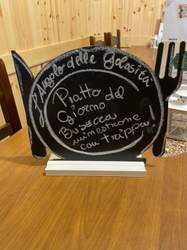 L'Angolo delle Golosità
Piatto del
Giorno
Buseca
minestrone
con trippa!